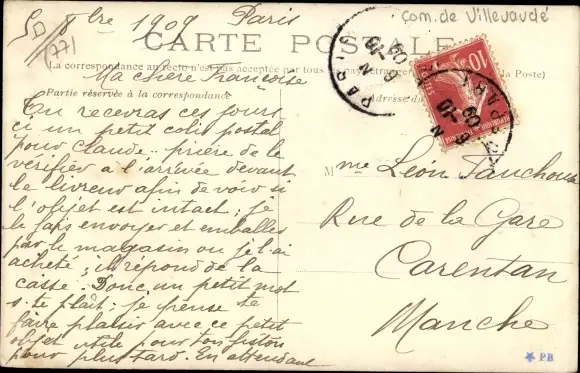 8bre 1909 Paris
com. de Villevaudé
CARTE POSTALE
La correspondance au recto n'est pas acceptée par tous
la Poste)
Ma chère Françoise
Partie réservée à la correspondance
Adresse
Tu recevras ces jours
ci un petit colis postal
pour Claude. prière de le
vérifier à l'arrivée devant
le livreur afin de voir si
l'objet est intact ; je
le fais envoyer et emballer
par le magasin où je l'ai
acheté ; il répond de la
casse. Donc un petit mot
s. te plaît. je pense te
faire plaisir avec ce petit
objet utile pour ton fiston
pour plus tard. En attendant
Mme Léon Fauchon
Rue de la Gare
Carentan
Manche
PARIS
10
PB